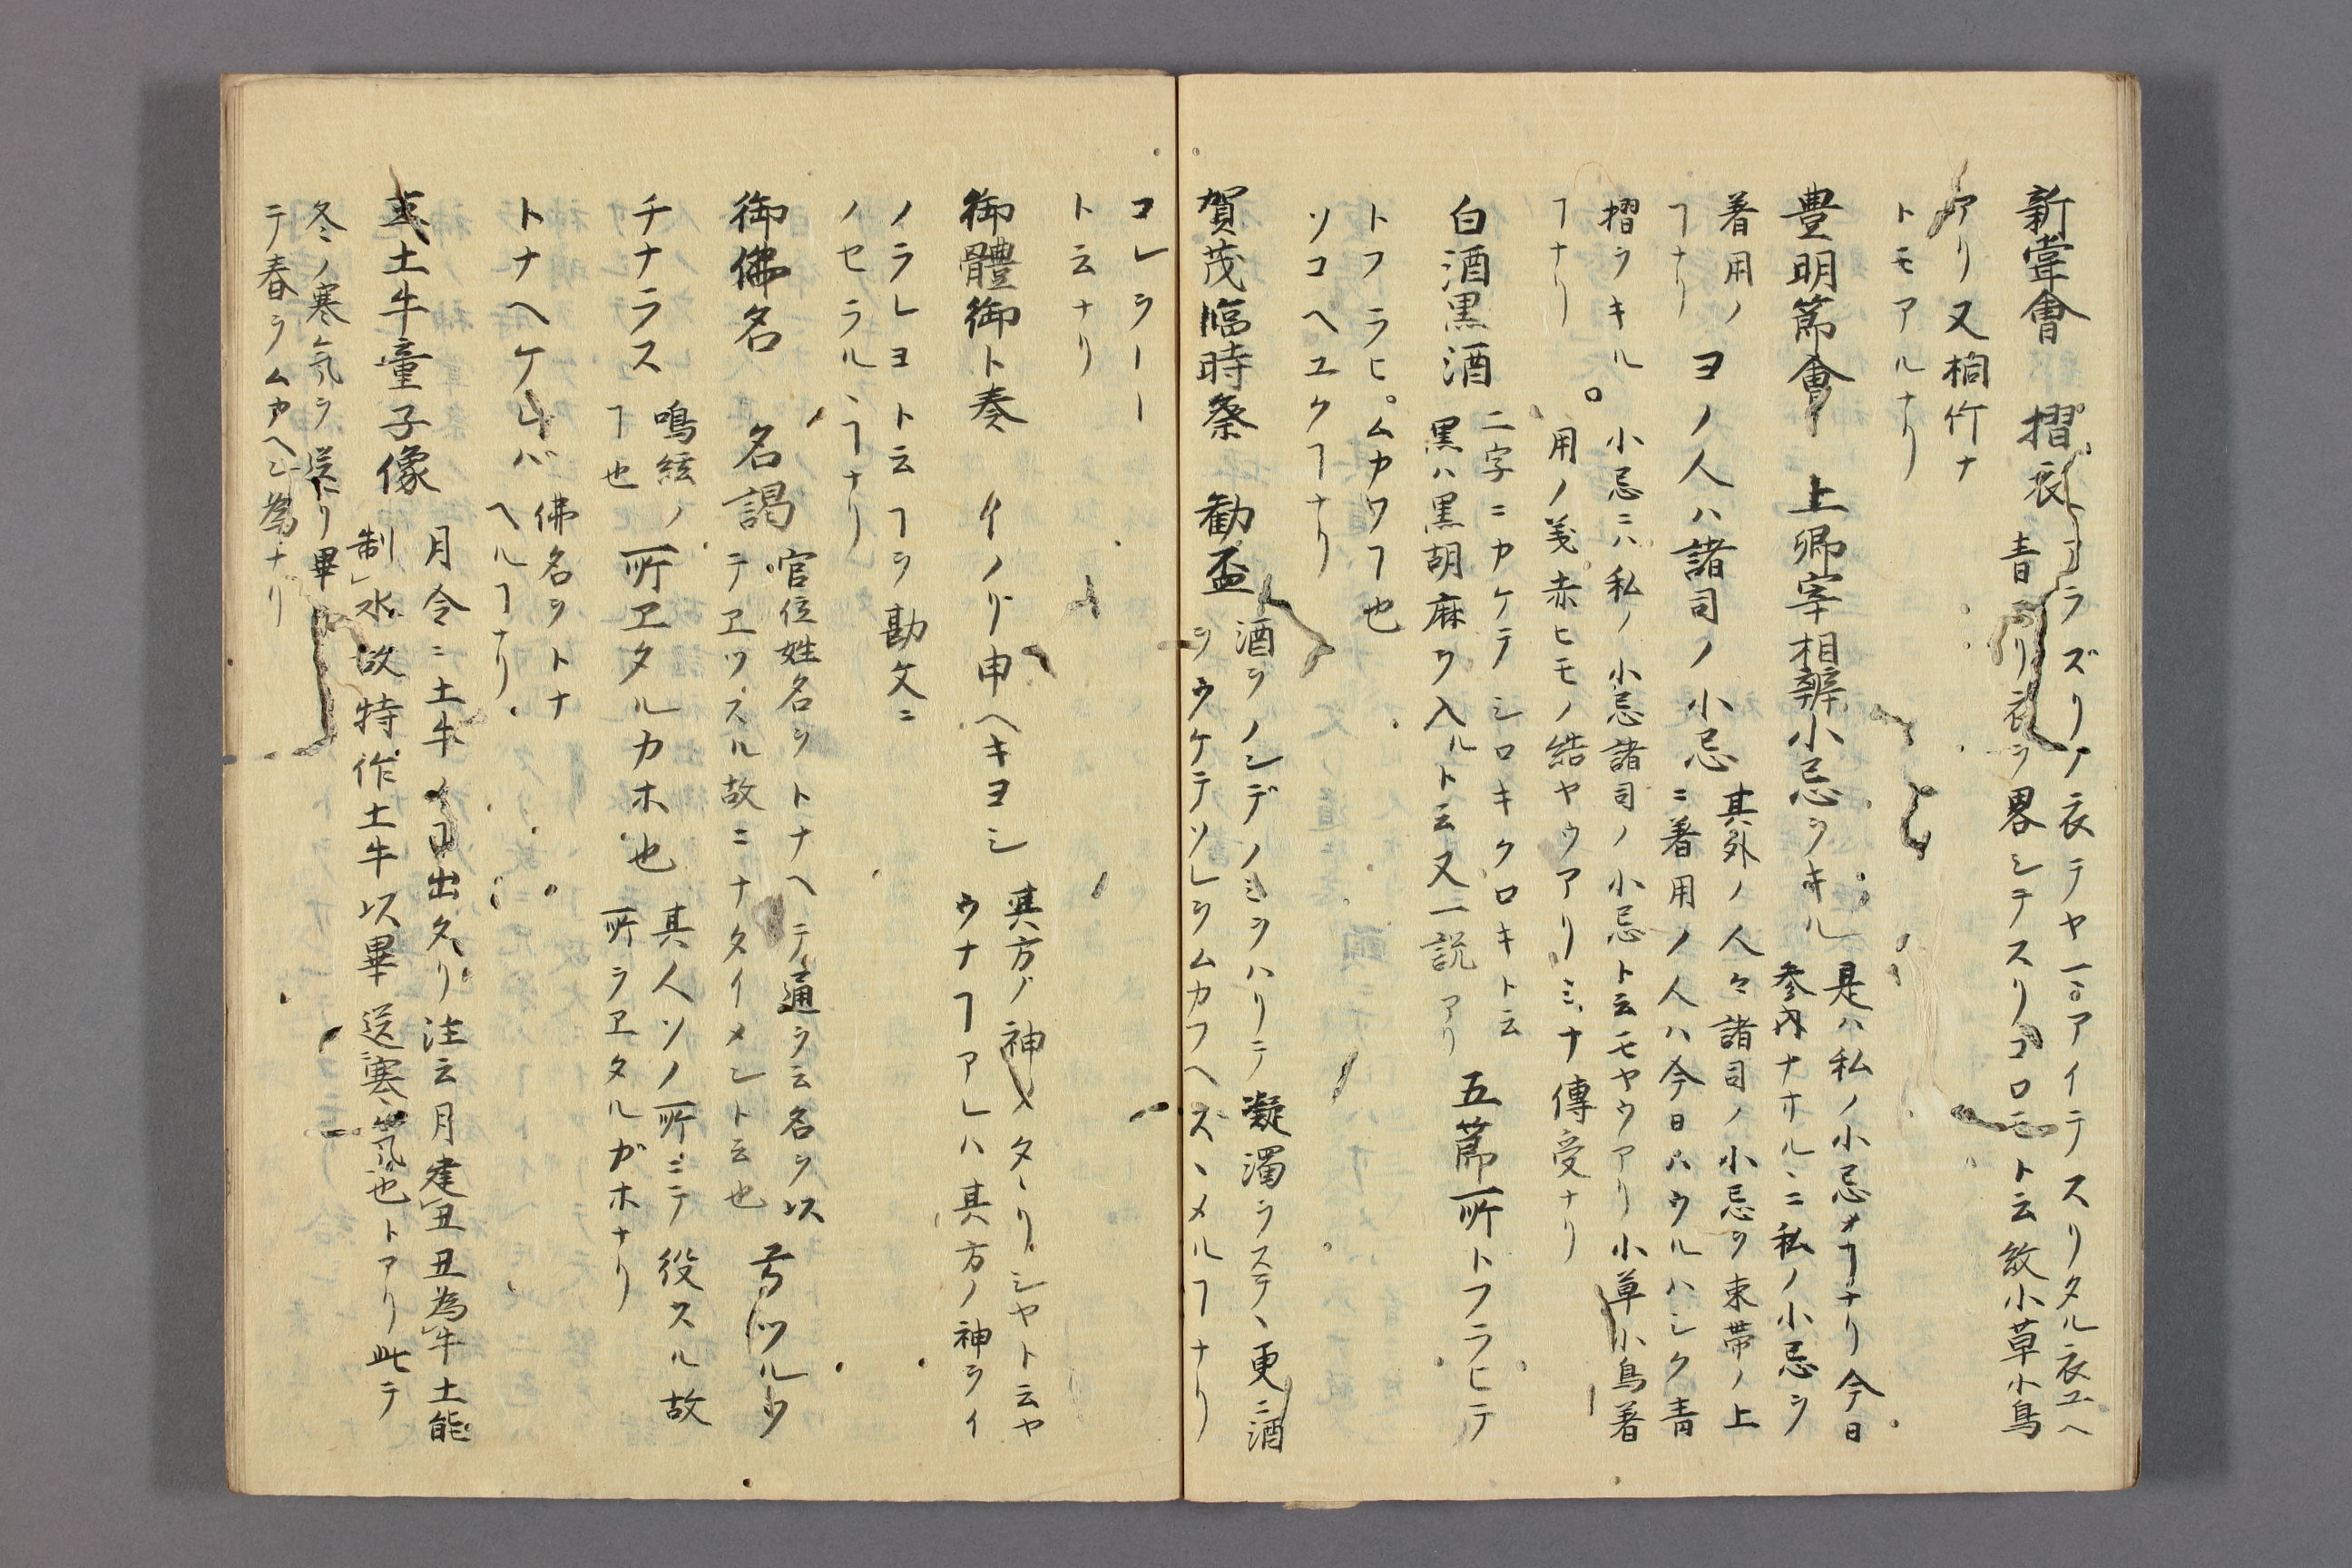 新嘗會 摺衣
アヲズリノ衣テヤ一アイテスリタル衣ユヘ
青スリ衣ヲ畧シテスリコロモト云紋小草小鳥
アリ又桐竹ナ
トモアルナリ
豊明節會 上卿宰相辨小忌ヲキル
是ハ私ノ小忌ナヿナリ今日
参内ナホルニ私ノ小忌ヲ
着用ノ
ヿナリ
ヨノ人ハ諸司ノ小忌
其外ノ人々諸司ノ小忌ヲ束帯ノ上
ニ着用ノ人ハ今日ハウルハシク青
摺ヲキル
ヿナリ
小忌ニハ私ノ小忌諸司ノ小忌ト云モヤウアリ小草小鳥着
用ノ義赤ヒモノ結ヤウアリミナ傳受ナリ
白酒黒酒
二字ニカケテシロキクロキト云
黒ハ黒胡麻ヲ入ルト云又一説アリ
五節所トフラヒテ
トフラヒムカウヿ也
ソコヘユクヿナリ
賀茂臨時祭 勧盃
酒ヲノンデノミヲハリテ凝濁ヲステヽ更ニ酒
ヲウケテソレヲムカフヘスヽメルヿナリ
コレラー
ト云ナリ
御體御ト奏 イノリ申ヘキヨシ
其方ノ神メタヽリシヤト云ヤ
ウナヿアレハ其方ノ神ヲイ
ノラレヨト云ヿヲ勘文ニ
ノセラルヽヿナリ
御佛名 名謁
官位姓名ヲトナヘテ通ヲ云名ヲ以
テヱツスル故ニナタイメント云也
チナラス
鳴絃ノ
ヿ也
所ヱタルカホ也
其人ソノ所ニテ役スル故
所ヲヱタルガホナリ
トナヘケレバ
佛名ヲトナ
ヘルヿナリ
土牛童子像
月令ニ土牛ノ出タリ注云月建丑丑為牛土能
制水故特作土牛以畢送寒氣也トアリ此テ
冬ノ寒気ヲ送リ畢
テ春ヲムカヘン為ナリ